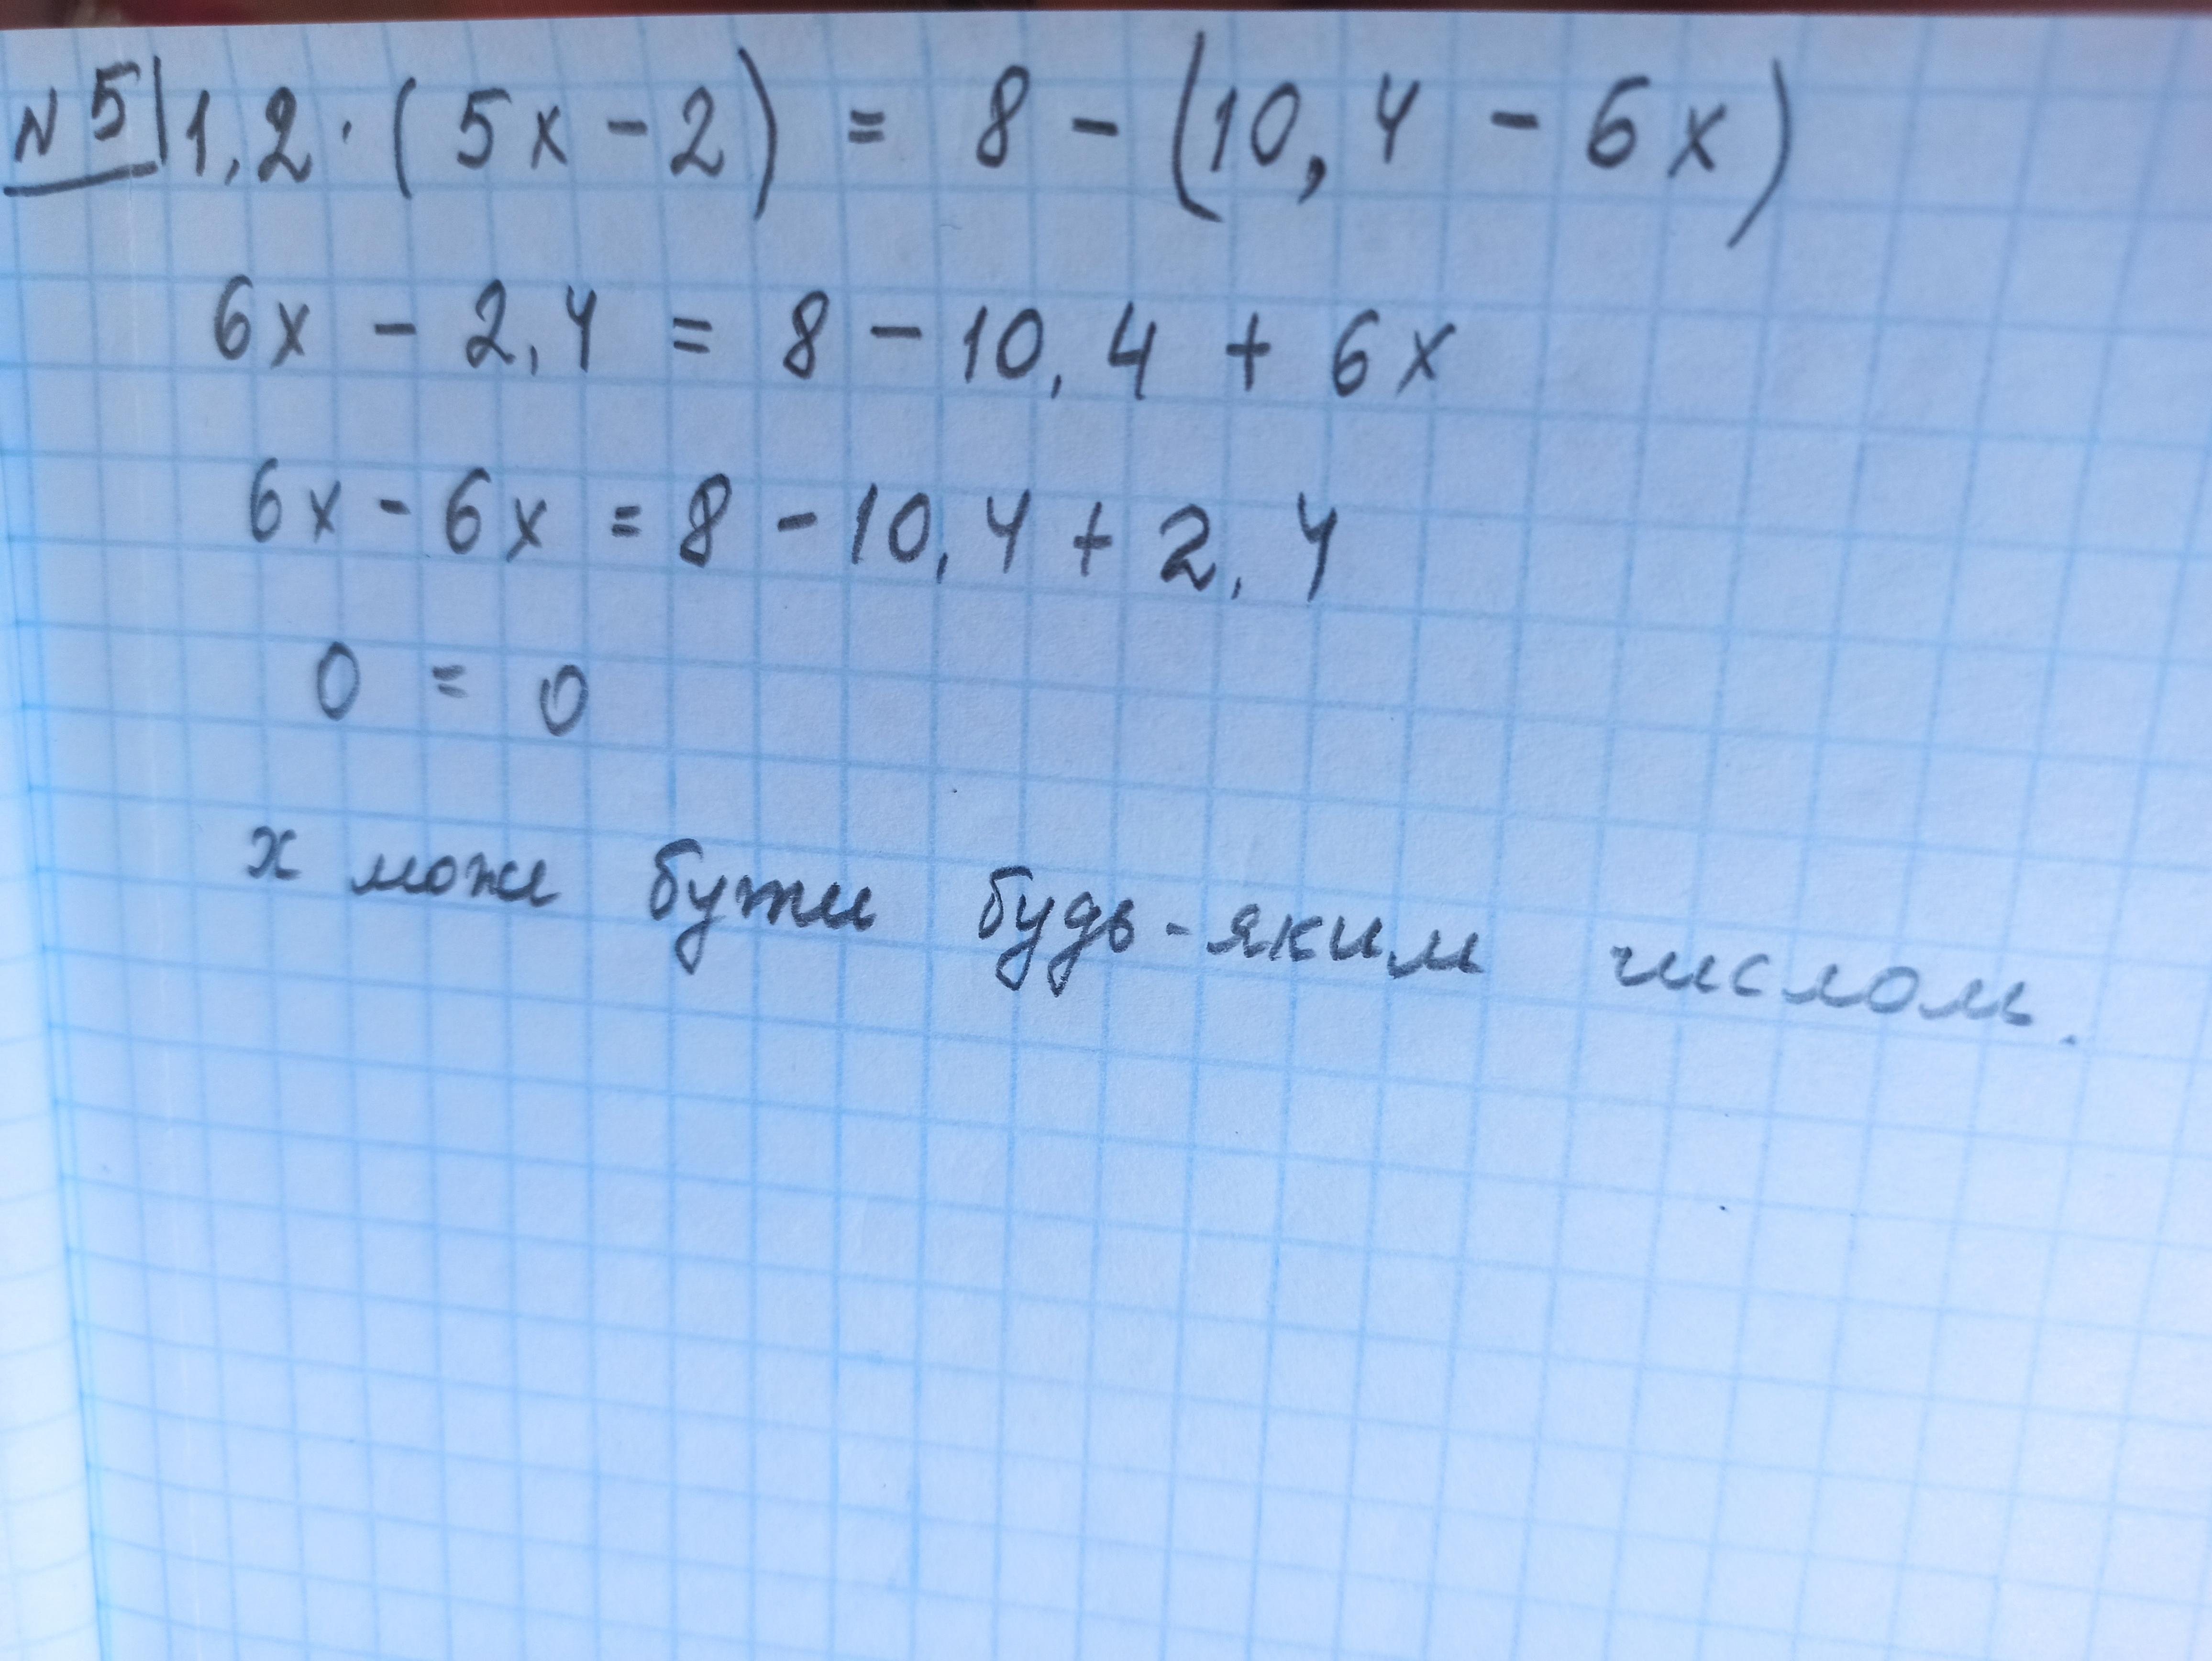 №5 1,2 · (5x - 2) = 8 - (10,4 - 6x)
6x - 2,4 = 8 - 10,4 + 6x
6x - 6x = 8 - 10,4 + 2,4
0 = 0
x може бути будь-яким числом.